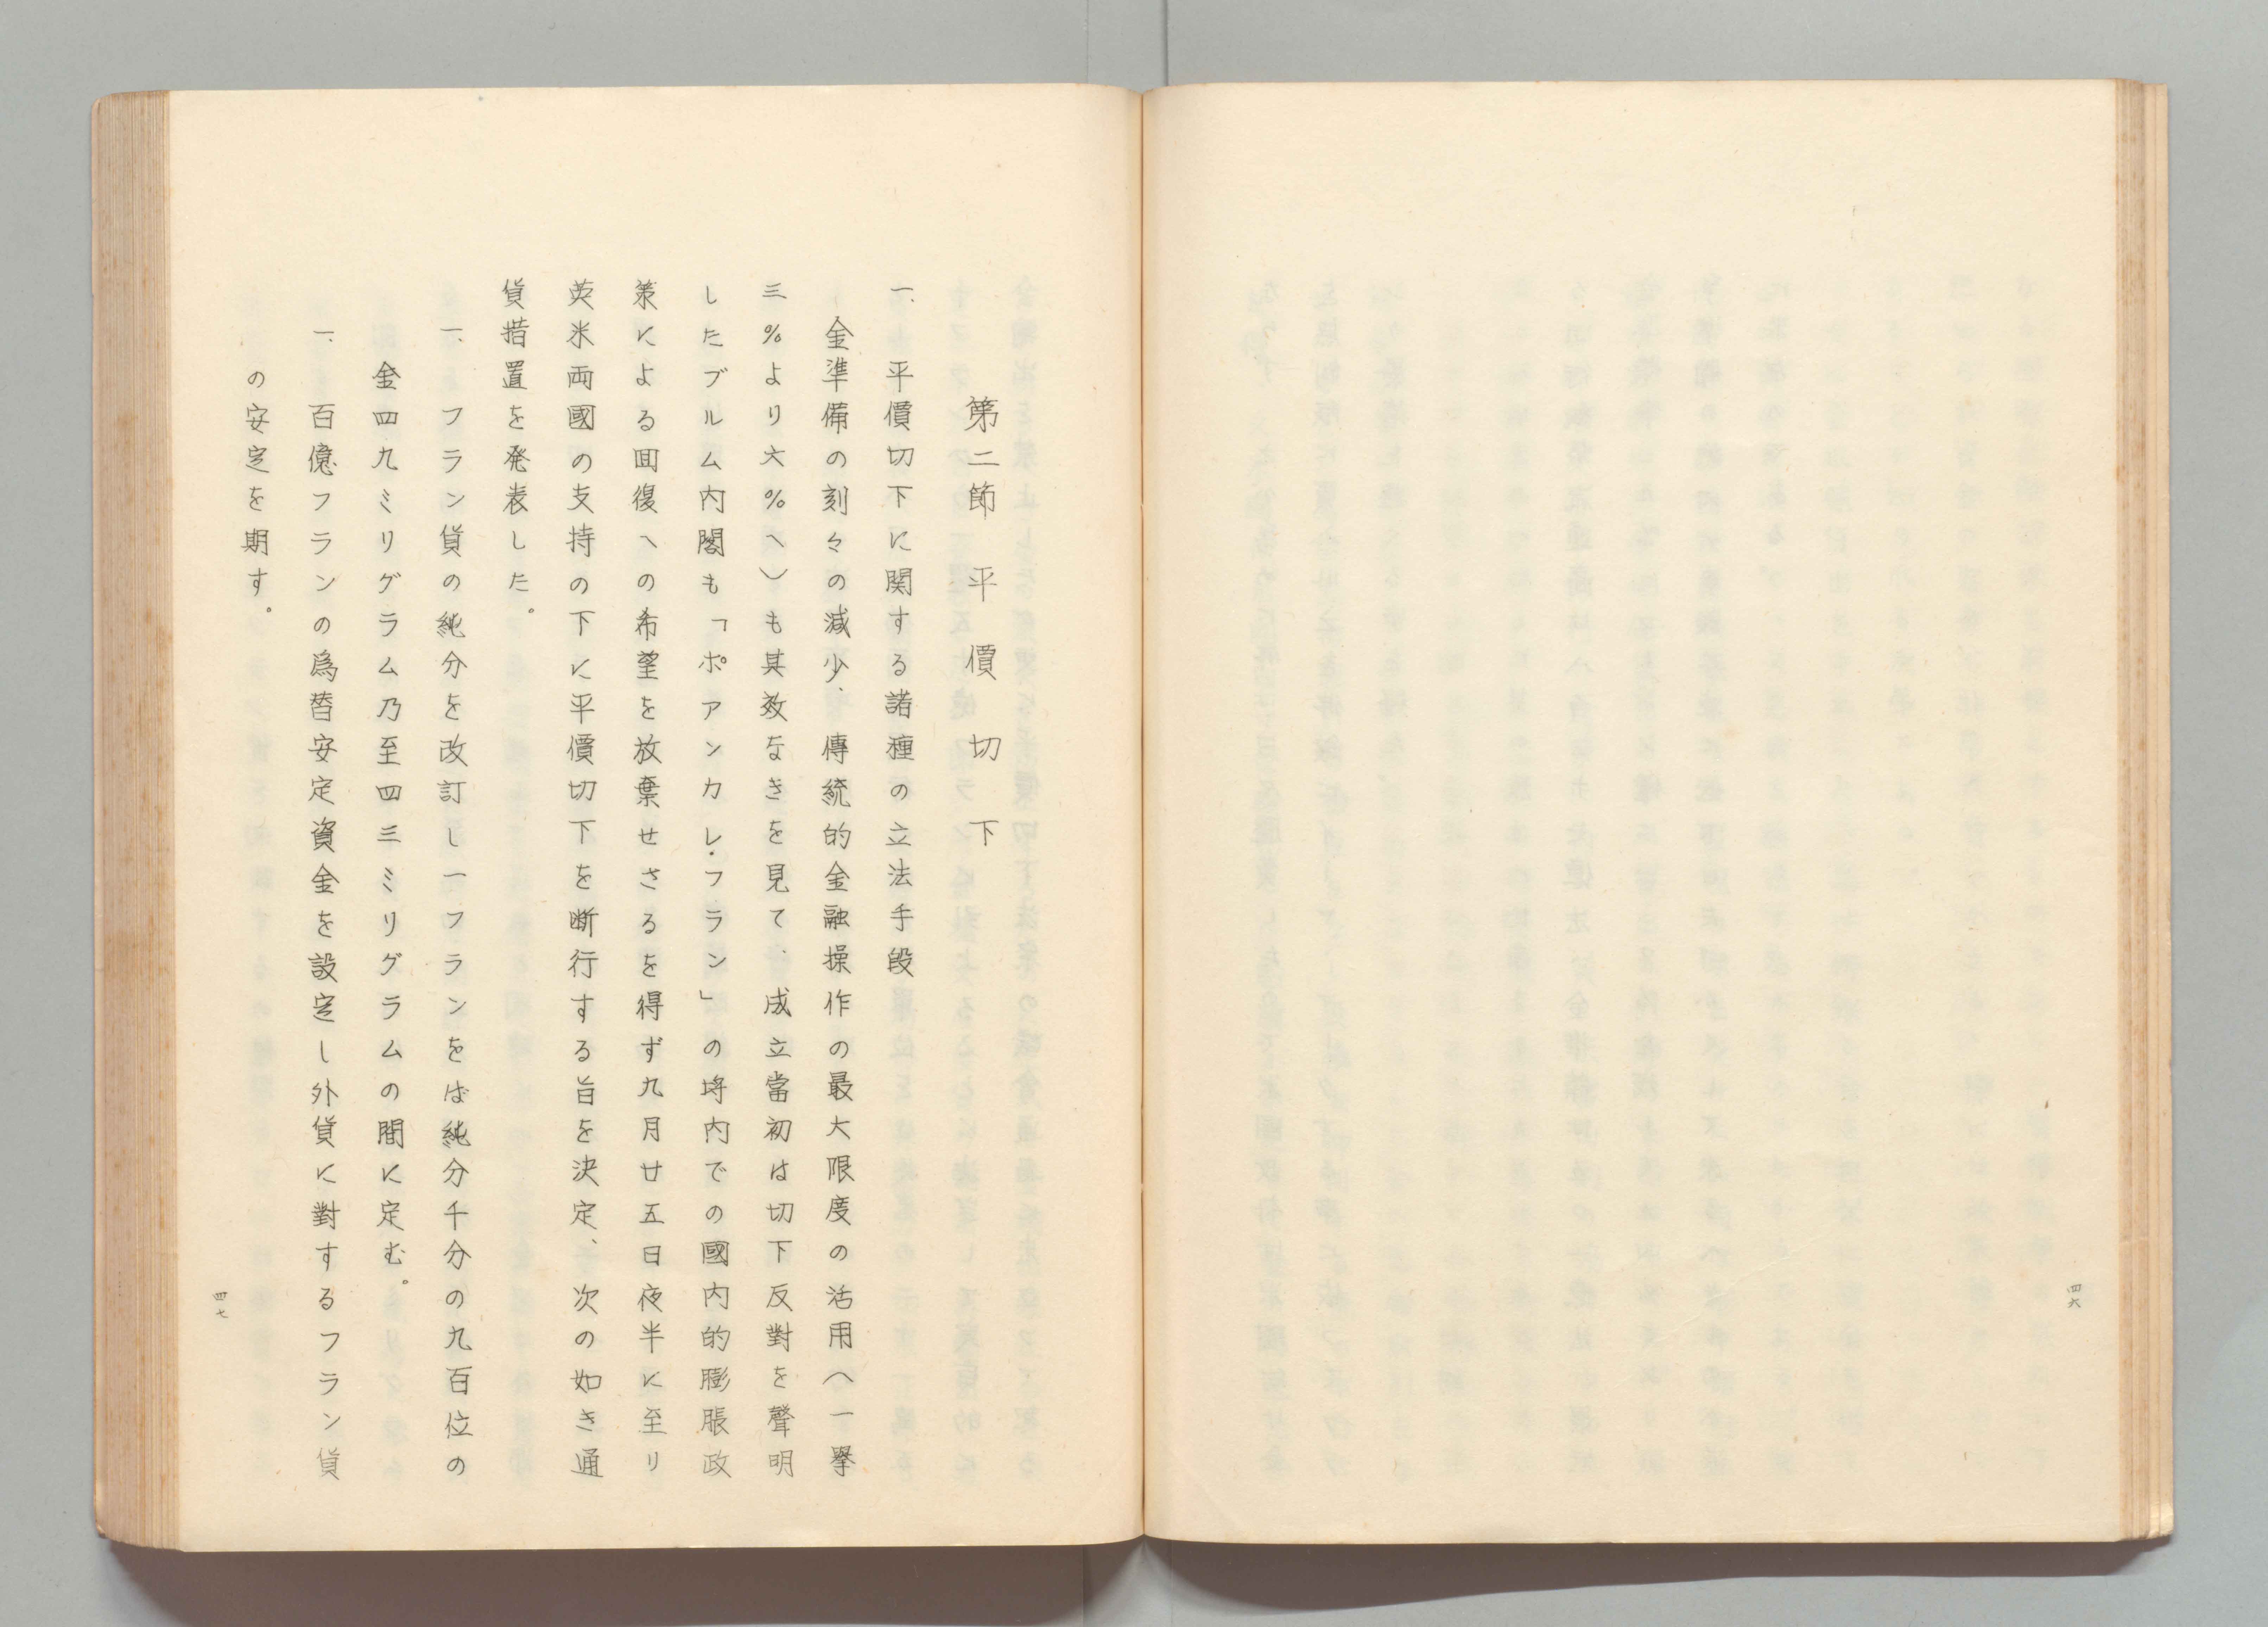 四六
第二節 平價切下
一、平價切下に関する諸種の立法手段
金準備の刻々の減少、傳統的金融操作の最大限度の活用（一擧
三％より六％へ）も其效なきを見て、成立當初は切下反對を聲明
したブルム内閣も「ポアンカレ・フラン」の埓内での國内的膨脹政
策による囬復への希望を放棄せさるを得ず九月廿五日夜半に至り
英米両國の支持の下に平價切下を断行する旨を決定、次の如き通
貨措置を発表した。
一、フラン貨の純分を改訂し一フランをば純分千分の九百位の
金四九ミリグラム乃至四三ミリグラムの間に定む。
一、百億フランの爲替安定資金を設定し外貨に對するフラン貨
の安定を期す。
四七